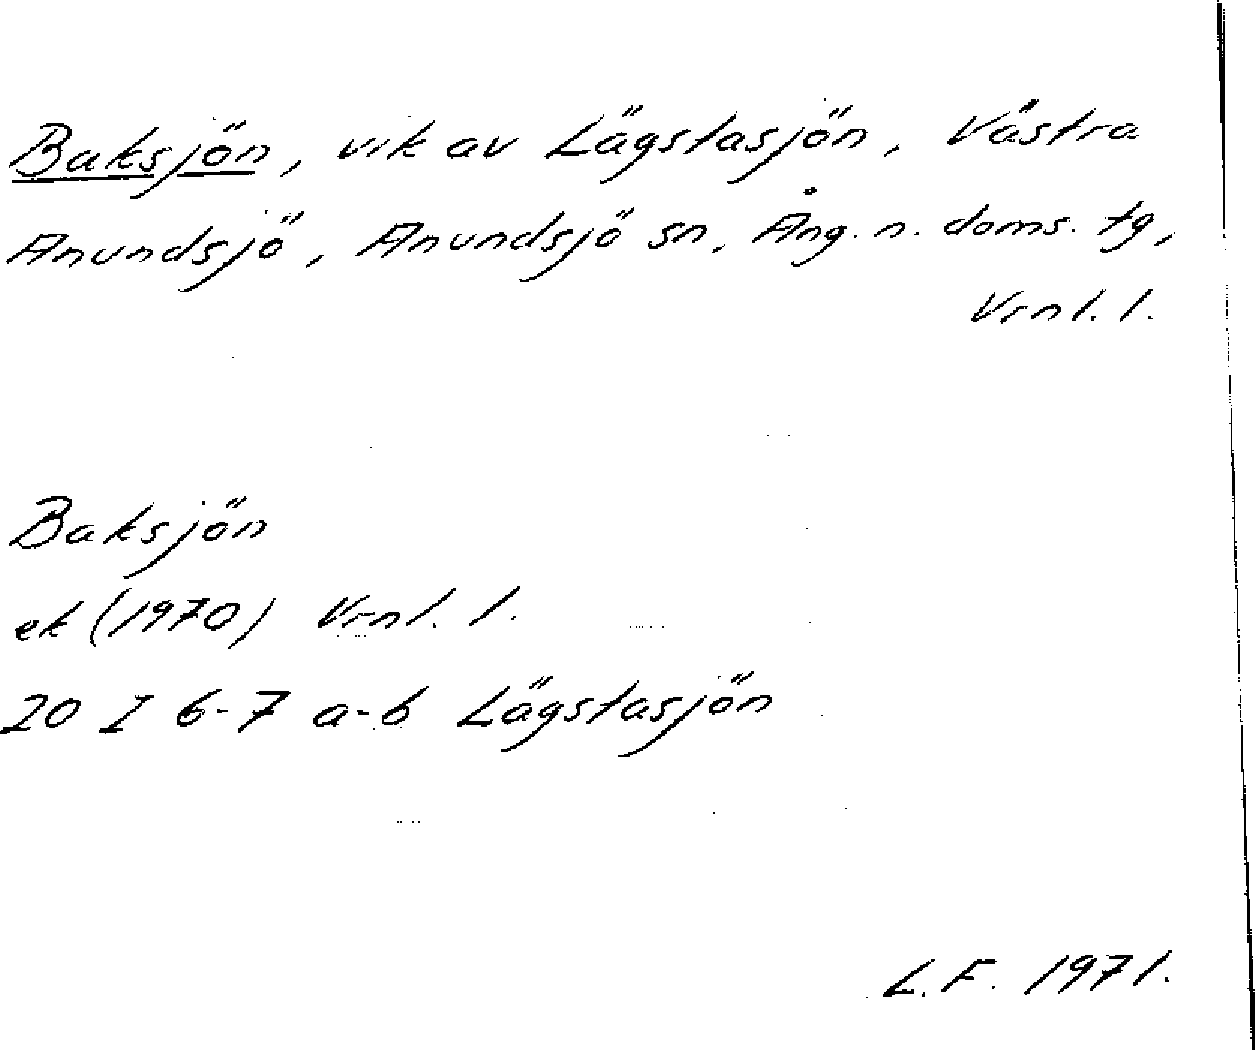 Baksjön, vik av Lägstasjön, Västra
Anundsjö, Anundsjö sn, Ång. n. doms. tg,
Vrnl. l.
Baksjön
ek (1970) Vrnl. l.
20 I 6-7 a-b Lägstasjön
L.F. 1971.